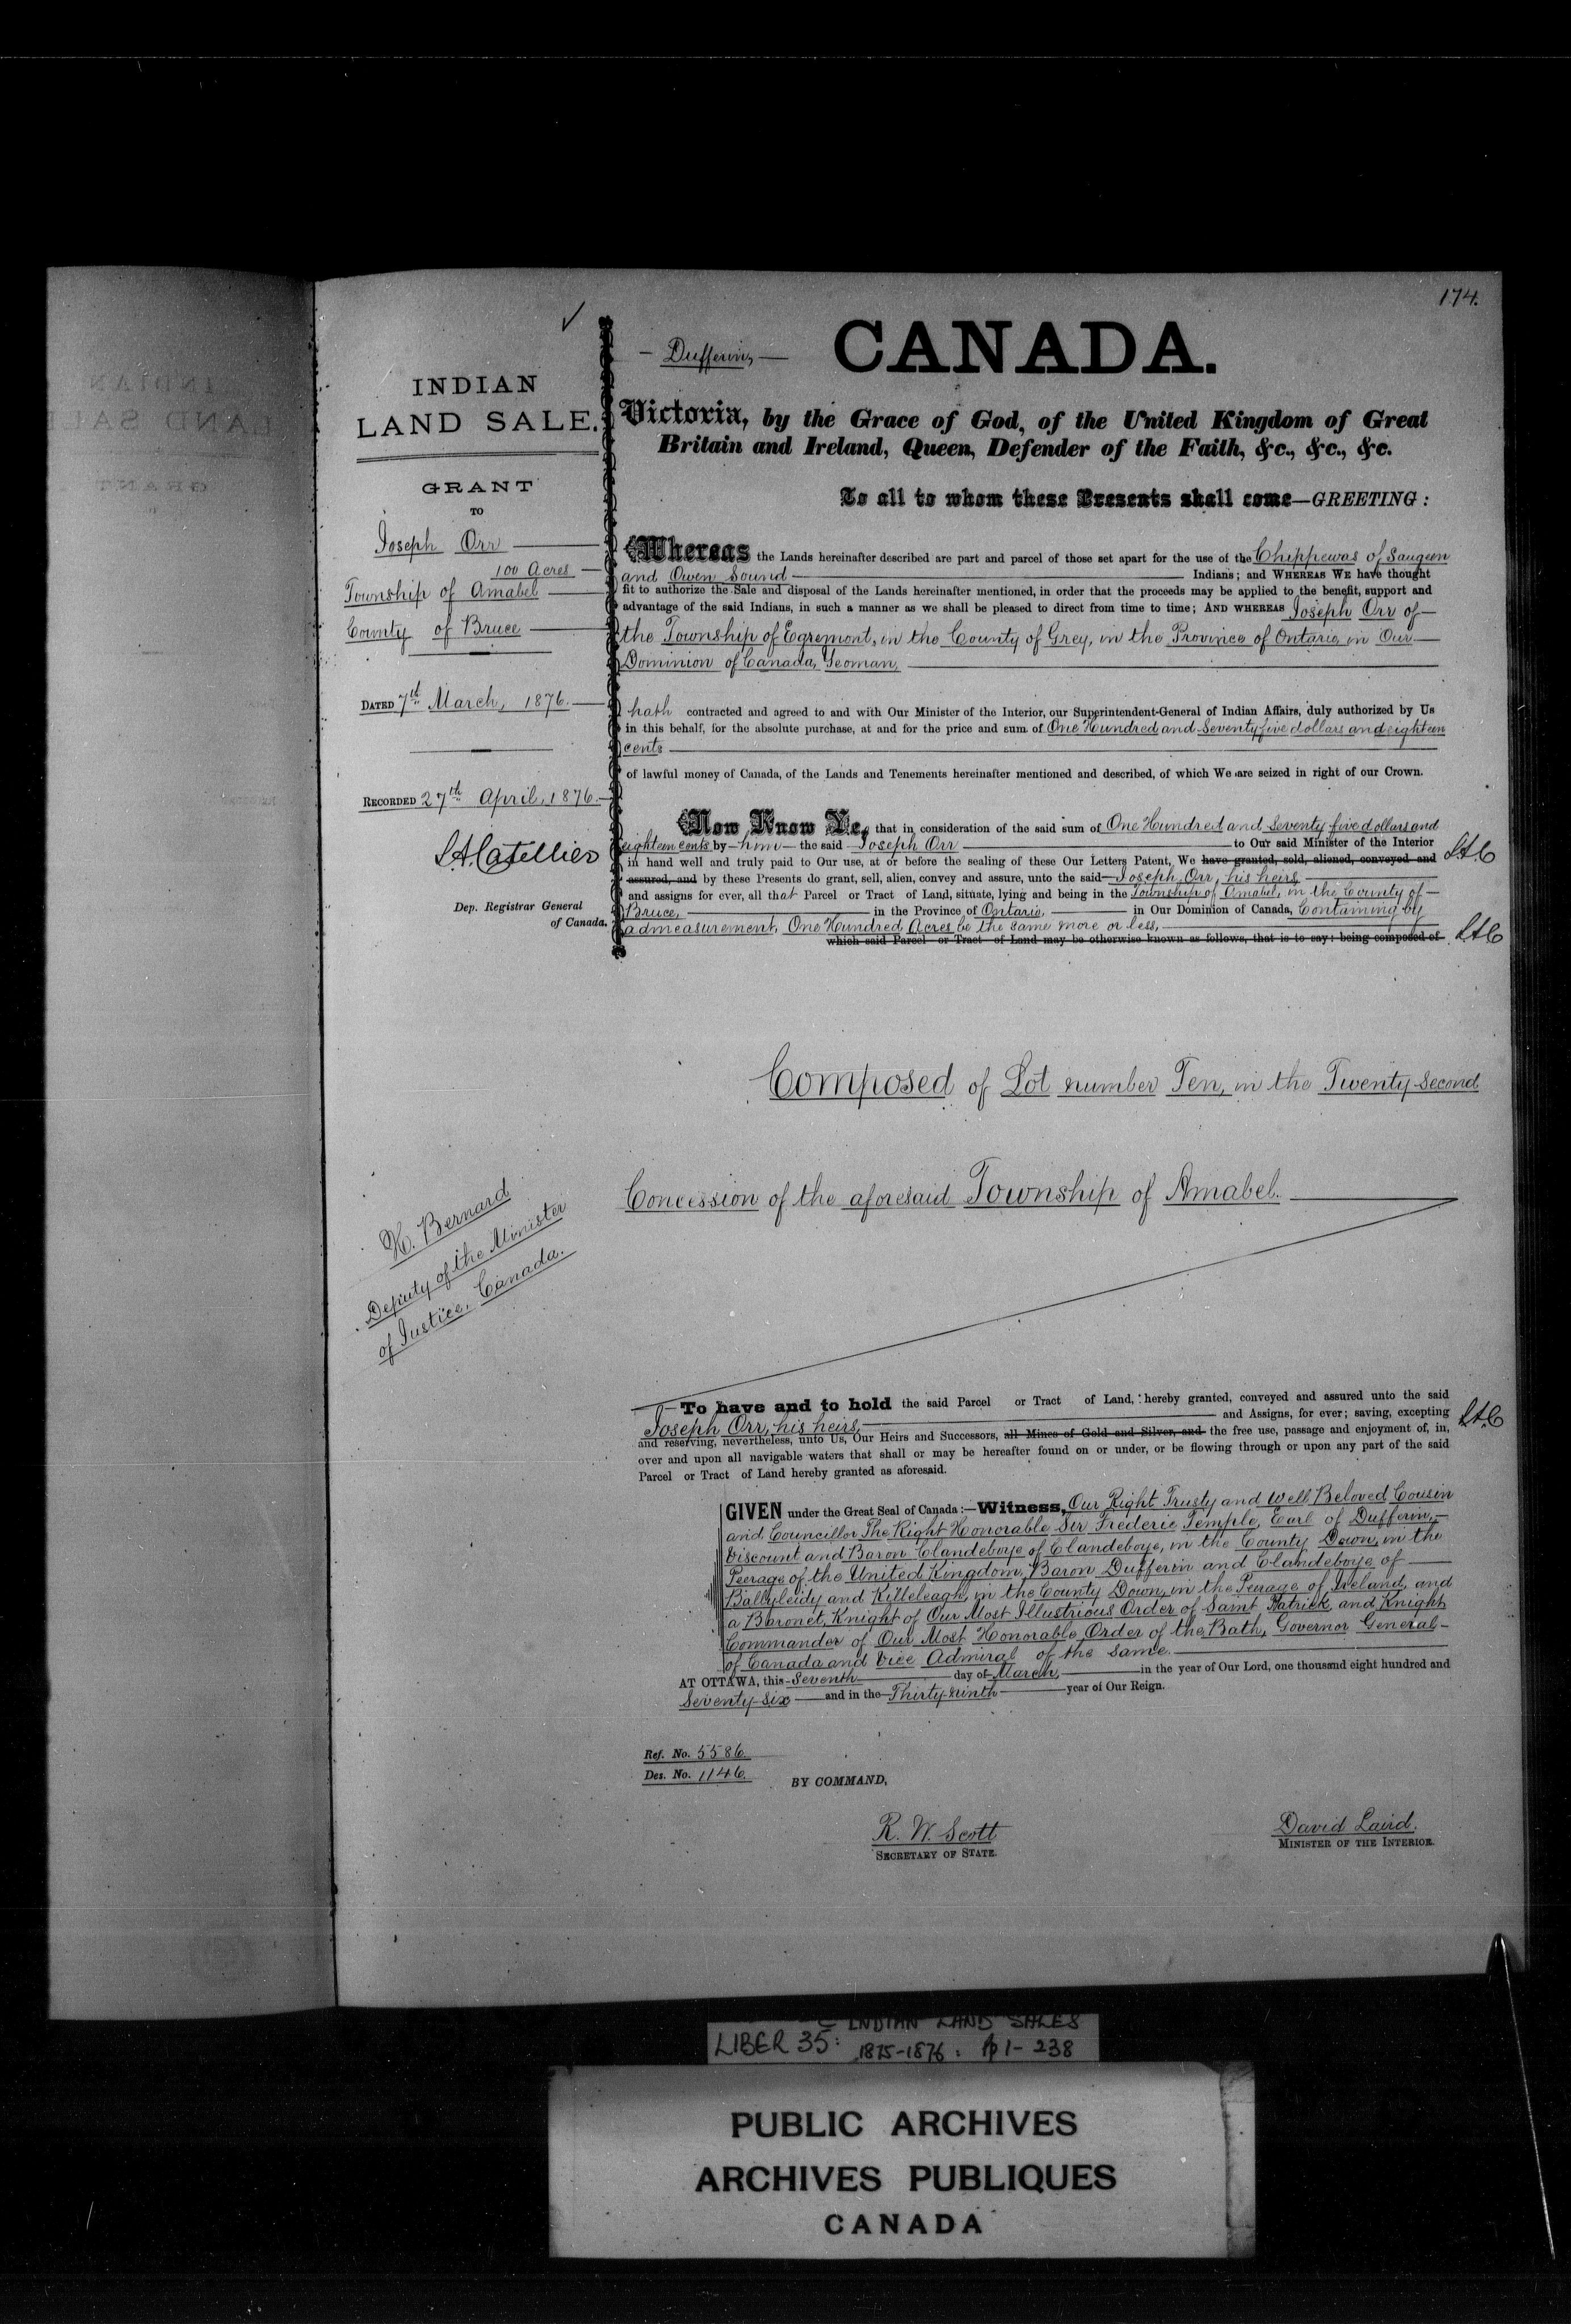 174.
INDIAN
LAND SALE.
GRANT
TO
Joseph Orr
100 Acres
Township of Amabel
County of Bruce
DATED 7th March, 1876.
RECORDED 27th April, 1876.
L.A. Catellier
Dep. Registrar General
of Canada.
H. Bernard
Deputy of the Minister
of Justice, Canada.
- Dufferin, -
CANADA.
Victoria, by the Grace of God, of the United Kingdom of Great
Britain and Ireland, Queen, Defender of the Faith, &c., &c., &c.
To all to whom these Presents shall come—GREETING:
Whereas the Lands hereinafter described are part and parcel of those set apart for the use of the Chippewas of Saugeen
and Owen Sound Indians; and WHEREAS WE have thought
fit to authorize the Sale and disposal of the Lands hereinafter mentioned, in order that the proceeds may be applied to the benefit, support and
advantage of the said Indians, in such a manner as we shall be pleased to direct from time to time; AND WHEREAS Joseph Orr of
the Township of Egremont, in the County of Grey, in the Province of Ontario in Our
Dominion of Canada, Yeoman,
hath contracted and agreed to and with Our Minister of the Interior, our Superintendent-General of Indian Affairs, duly authorized by Us
in this behalf, for the absolute purchase, at and for the price and sum of One Hundred and Seventy five dollars and eighteen
cents
of lawful money of Canada, of the Lands and Tenements hereinafter mentioned and described, of which We are seized in right of our Crown.
Now Know Ye, that in consideration of the said sum of One Hundred and Seventy five dollars and
eighteen cents by him the said Joseph Orr to Our said Minister of the Interior
in hand well and truly paid to Our use, at or before the sealing of these Our Letters Patent, We have granted, sold, aliened, conveyed and LAC
assured, and by these Presents do grant, sell, alien, convey and assure, unto the said Joseph Orr, his heirs
and assigns for ever, all that Parcel or Tract of Land, situate, lying and being in the Township of Amabel, in the County of
Bruce, in the Province of Ontario, in Our Dominion of Canada, Containing by
admeasurement, One Hundred Acres be the same more or less,
which said Parcel or Tract of Land may be otherwise known as follows, that is to say: being composed of LAC
Composed of Lot number Ten, in the Twenty Second
Concession of the aforesaid Township of Amabel.
To have and to hold the said Parcel or Tract of Land, hereby granted, conveyed and assured unto the said
Joseph Orr, his heirs, and Assigns, for ever; saving, excepting LAC
and reserving, nevertheless, unto Us, Our Heirs and Successors, all Mines of Gold and Silver, and the free use, passage and enjoyment of, in,
over and upon all navigable waters that shall or may be hereafter found on or under, or be flowing through or upon any part of the said
Parcel or Tract of Land hereby granted as aforesaid.
GIVEN under the Great Seal of Canada:—Witness, Our Right Trusty and Well Beloved Cousin
and Councillor The Right Honorable Sir Frederic Temple, Earl of Dufferin,
Viscount and Baron Clandeboye of Clandeboye, in the County Down, in the
Peerage of the United Kingdom, Baron Dufferin and Clandeboye of
Ballyleidy and Killeleagh, in the County Down, in the Peerage of Ireland, and
a Baronet, Knight of Our Most Illustrious Order of Saint Patrick, and Knight
Commander of Our Most Honorable Order of the Bath, Governor General
of Canada and Vice Admiral of the same.
AT OTTAWA, this Seventh day of March, in the year of Our Lord, one thousand eight hundred and
Seventy Six and in the Thirty ninth year of Our Reign.
Ref. No. 5586
Des. No. 1146.
BY COMMAND,
R. W. Scott
SECRETARY OF STATE.
David Laird.
MINISTER OF THE INTERIOR.
INDIAN LAND SALES
LIBER 35: 1875-1876: pp 1-238
PUBLIC ARCHIVES
ARCHIVES PUBLIQUES
CANADA